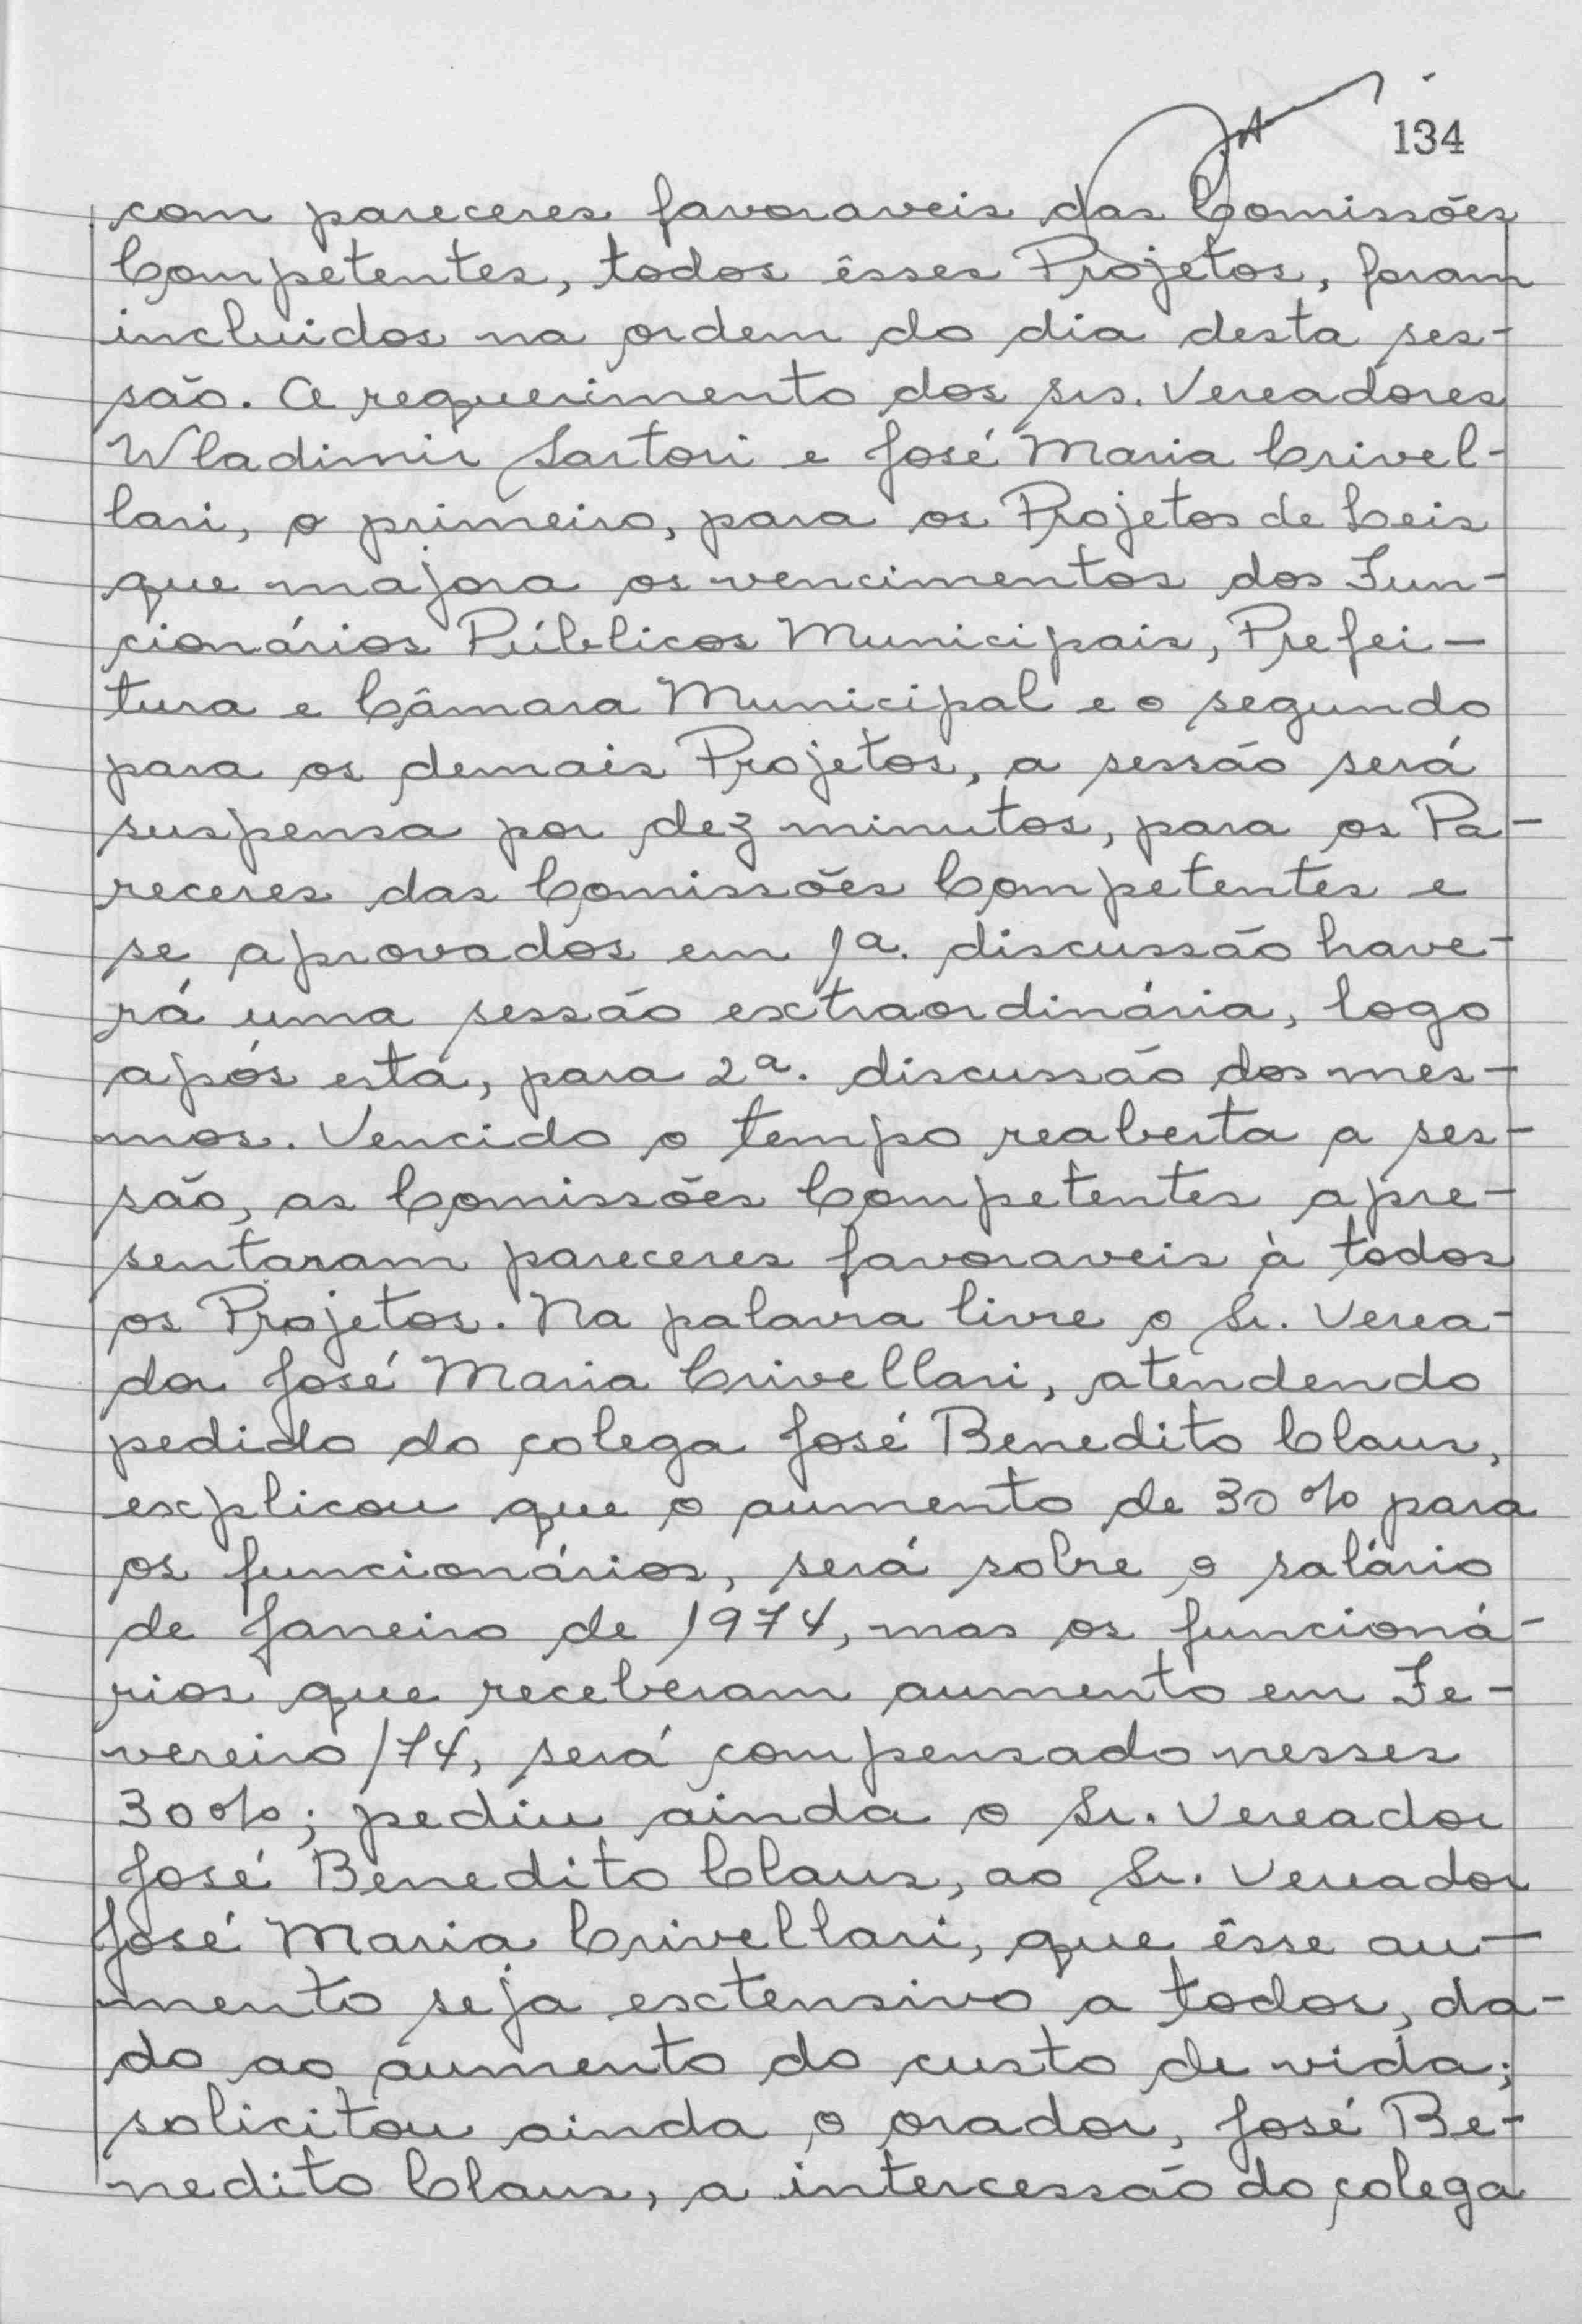 134
com pareceres favoraveis das Comissões
Competentes, todos êsses Projetos, foram
incluidos na ordem do dia desta ses-
são. A requerimento dos srs. Vereadores
Wladimir Sartori e José Maria Crivel-
lari, o primeiro, para os Projetos de Leis
que majora os vencimentos dos Fun-
cionários Públicos Municipais, Prefei-
tura e Câmara Municipal e o segundo
para os demais Projetos, a sessão será
suspensa por dez minutos, para os Pa-
receres das Comissões Competentes e
se aprovados em 1ª. discussão have-
rá uma sessão extraordinária, logo
após esta, para 2ª. discussão dos mes-
mos. Vencido o tempo reaberta a ses-
são, as Comissões Competentes apre-
sentaram pareceres favoraveis à todos
os Projetos. Na palavra livre o Sr. Verea-
dor José Maria Crivellari, atendendo
pedido do colega José Benedito Claus,
explicou que o aumento de 30% para
os funcionários, será sobre o salário
de Janeiro de 1974, mas os funcioná-
rios que receberam aumento em Fe-
vereiro/74, será compensado nesses
30%; pediu ainda o Sr. Vereador
José Benedito Claus, ao Sr. Vereador
José Maria Crivellari, que êsse au-
mento seja extensivo a todos, da-
do ao aumento do custo de vida;
solicitou ainda o orador, José Be-
nedito Claus, a intercessão do colega